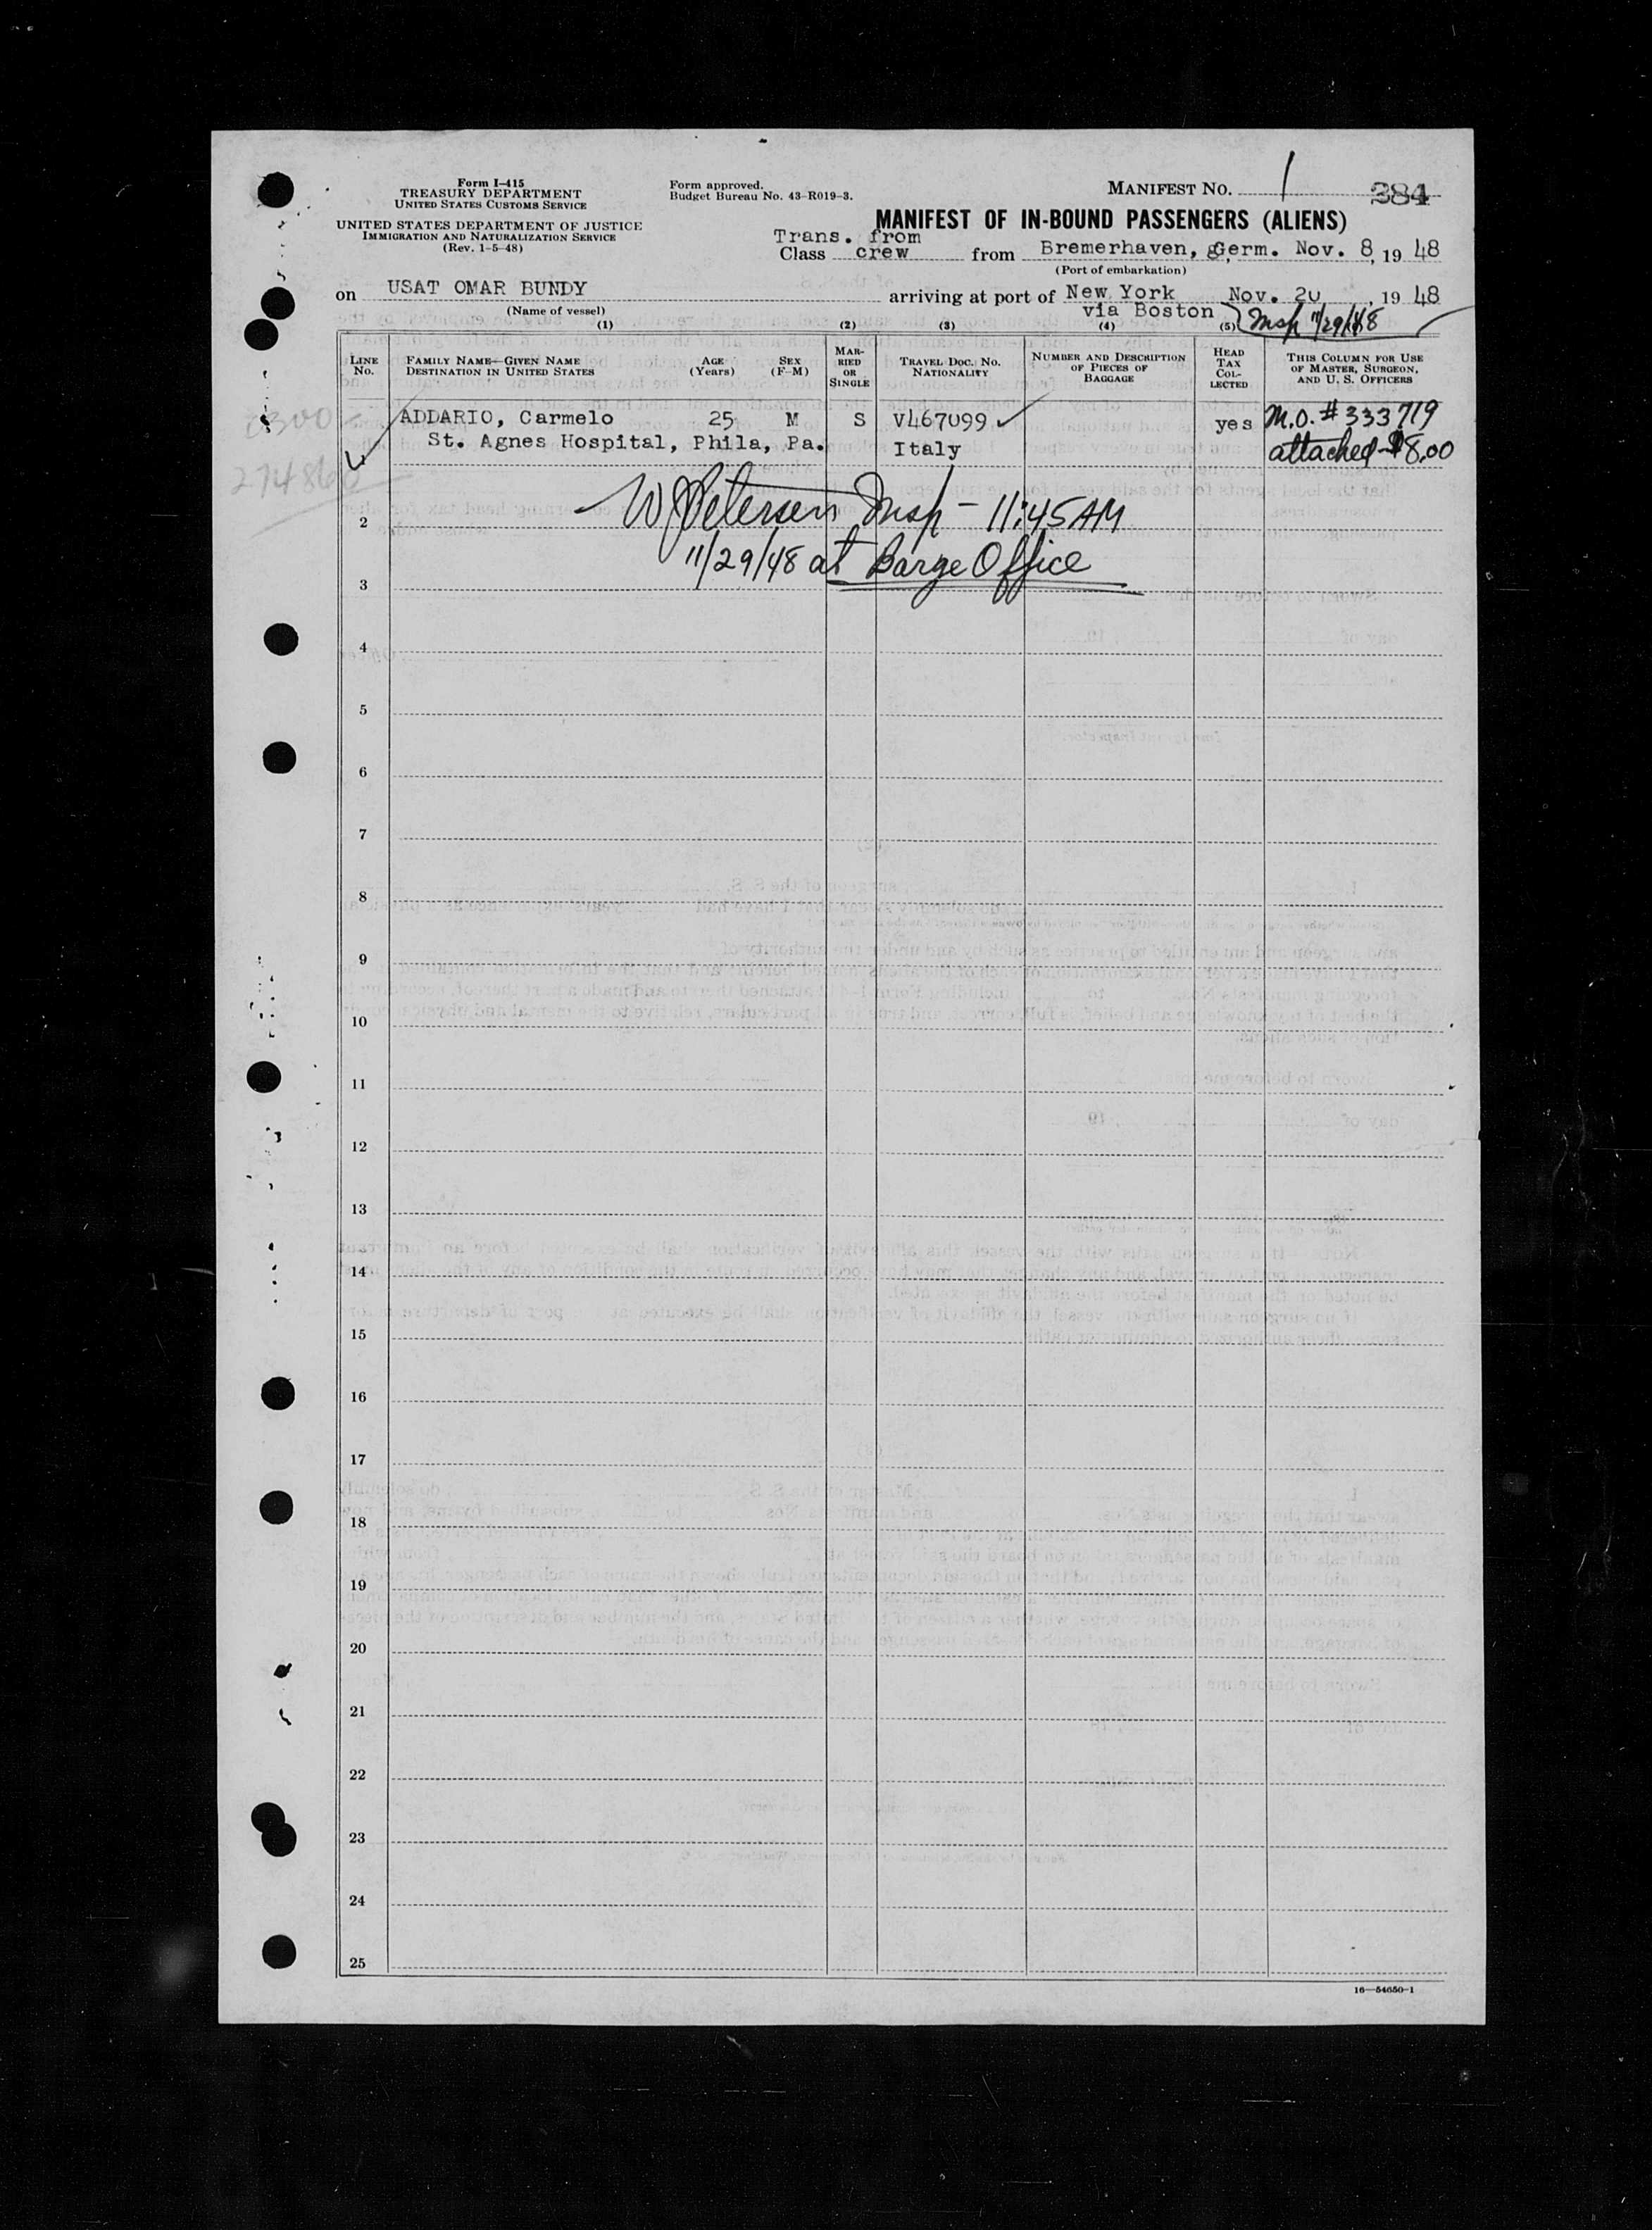 Form I-415
TREASURY DEPARTMENT
UNITED STATES CUSTOMS SERVICE
UNITED STATES DEPARTMENT OF JUSTICE
IMMIGRATION AND NATURALIZATION SERVICE
(Rev. 1-5-48)
Form approved.
Budget Bureau No. 43-R019-3.
MANIFEST NO. 1 384
MANIFEST OF IN-BOUND PASSENGERS (ALIENS)
Trans. from
Class crew from Bremerhaven, germ. Nov. 8, 19 48
(Port of embarkation)
on USAT OMAR BUNDY arriving at port of New York Nov. 20, 19 48
(Name of vessel) via Boston Insp 11/29/48
(1) (2) (3) (4) (5)
LINE No. FAMILY NAME—GIVEN NAME DESTINATION IN UNITED STATES AGE (Years) SEX (F-M) MARRIED OR SINGLE TRAVEL DOC. NO. NATIONALITY NUMBER AND DESCRIPTION OF PIECES OF BAGGAGE HEAD TAX COLLECTED THIS COLUMN FOR USE OF MASTER, SURGEON, AND U. S. OFFICERS
ADDARIO, Carmelo 25 M S V467099 yes M.O. # 333719
St. Agnes Hospital, Phila, Pa. Italy attached $8.00
W Petersen Insp - 11:45 AM
2
11/29/48 at Barge Office
3
4
5
6
7
8
9
10
11
12
13
14
15
16
17
18
19
20
21
22
23
24
25
16—54650-1